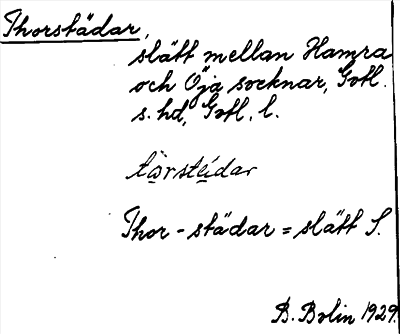 Thorstädar,
slätt mellan Hamra
och Öja socknar, Gotl.
s. hd, Gotl. l.
tårstädar
Thor - städar = slätt S.
B. Bolin 1929.